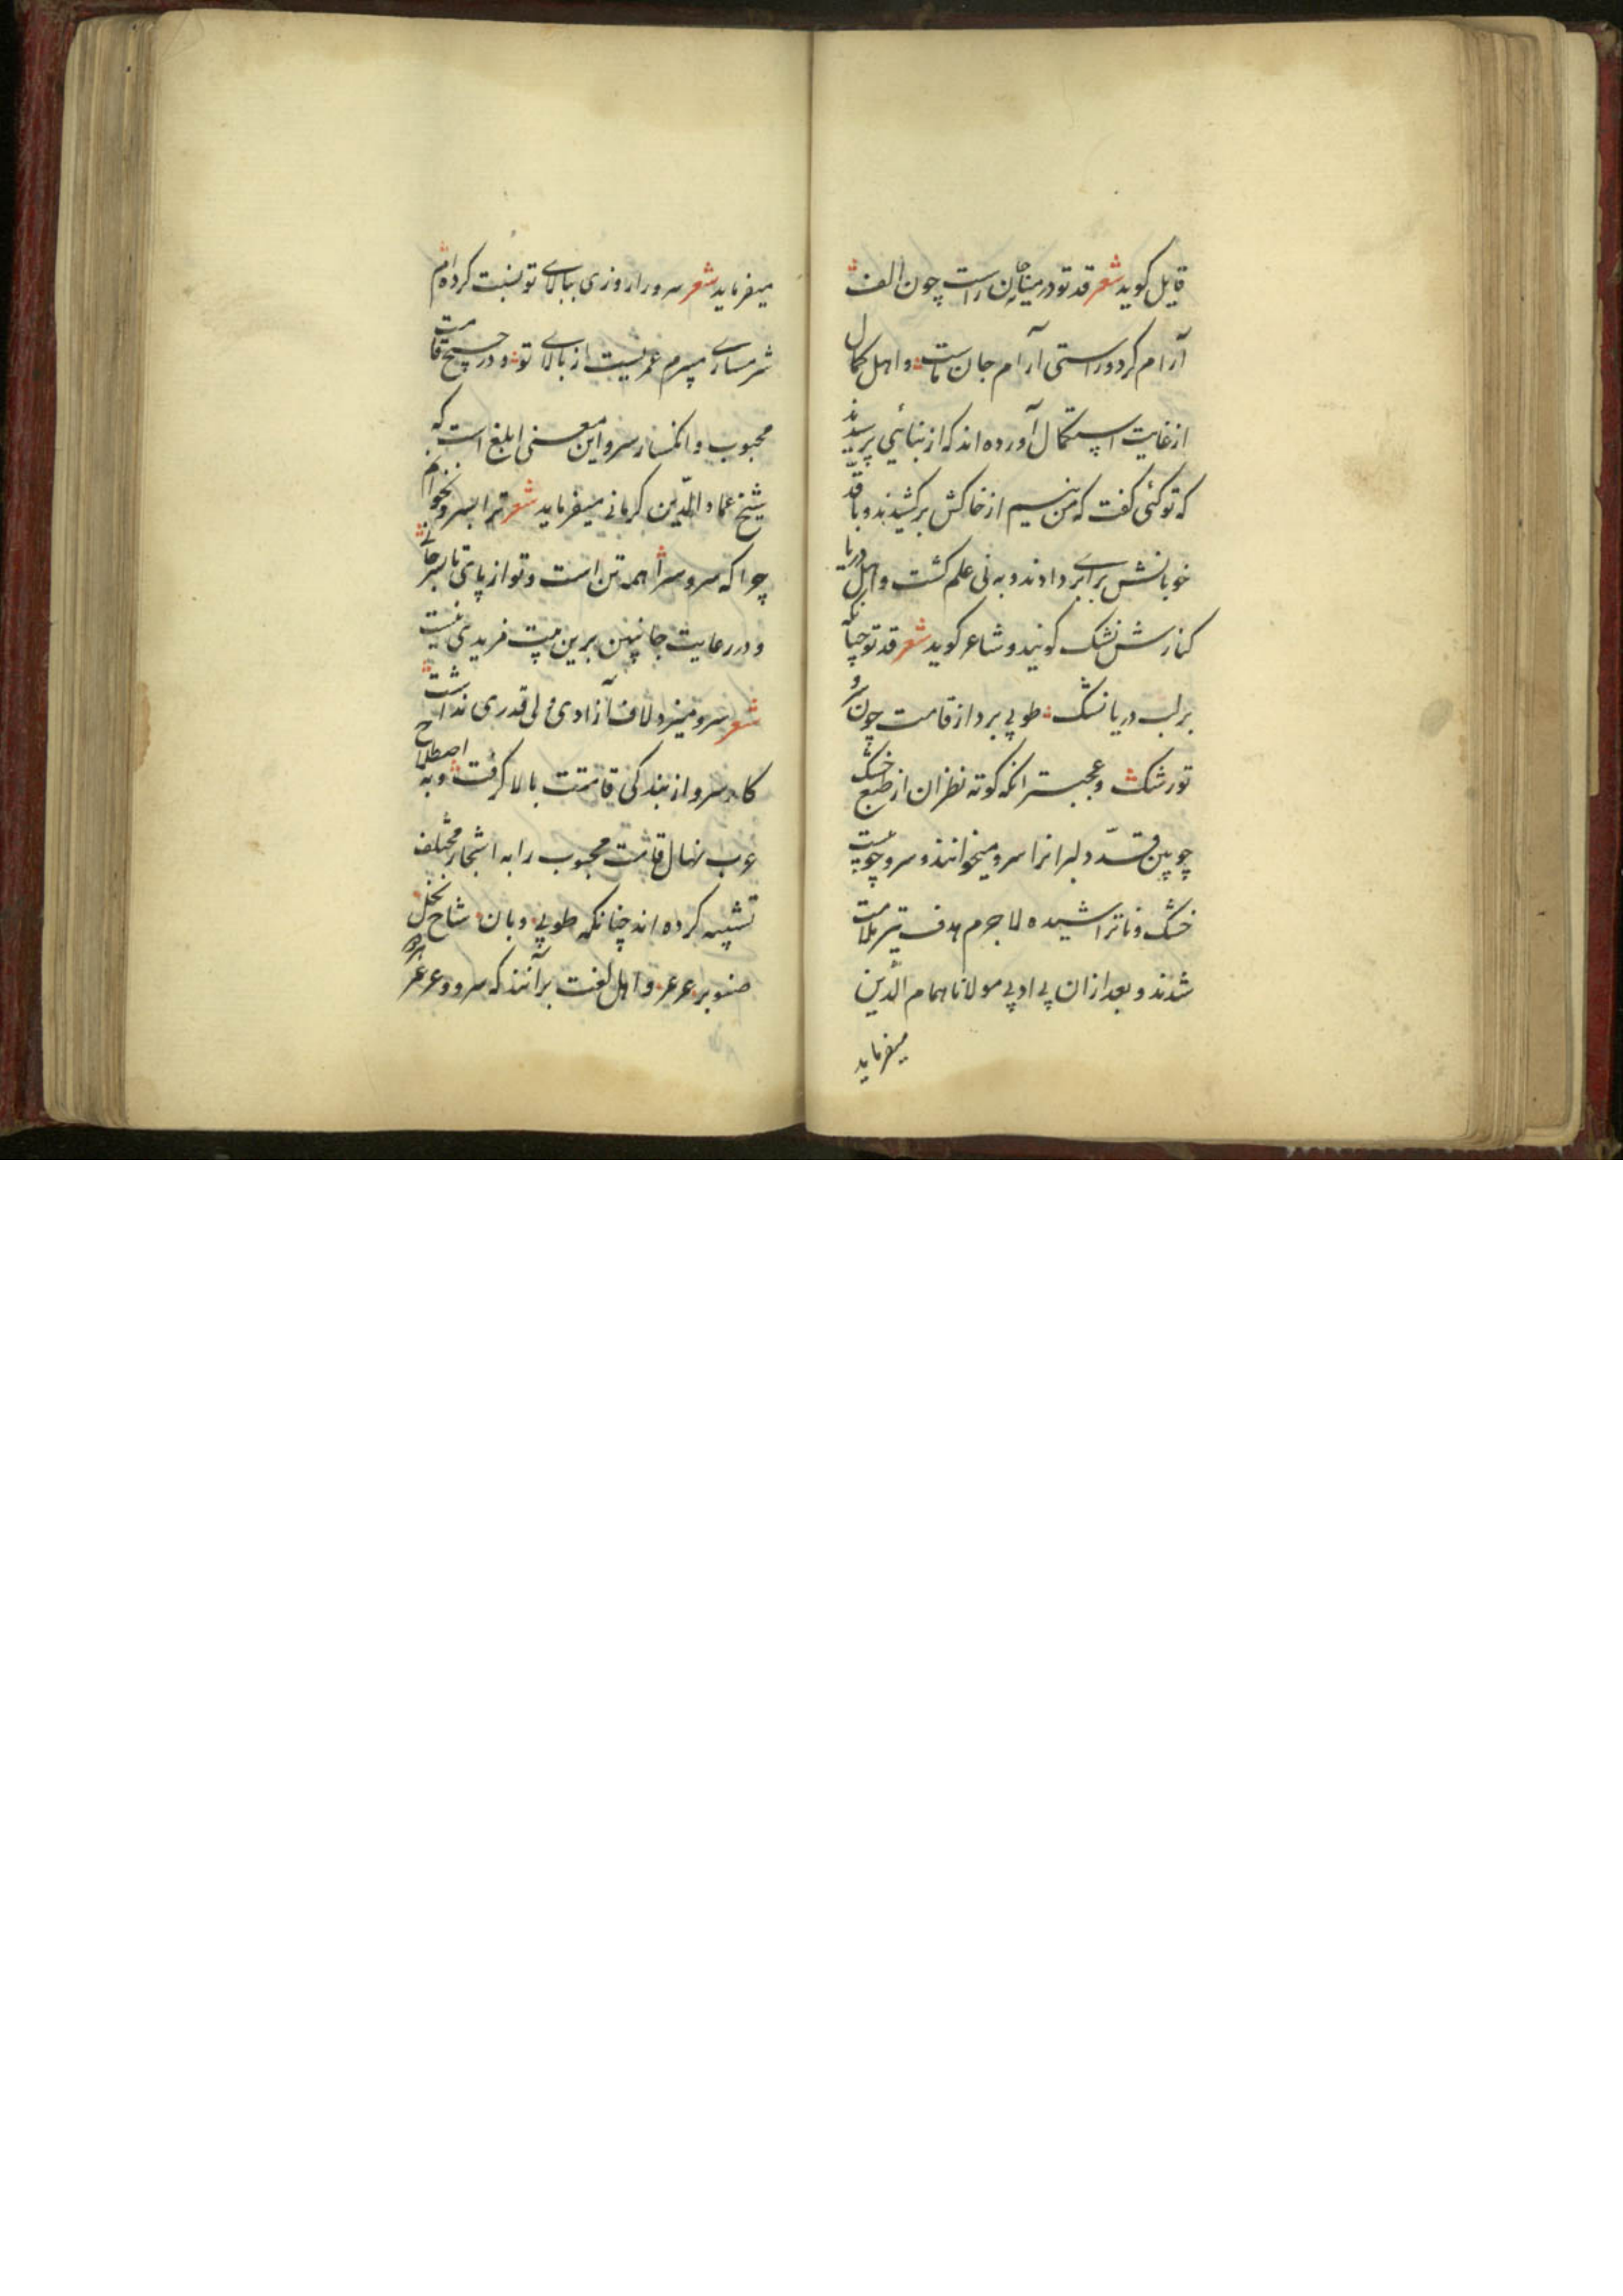 قایل کوید شعر قد تو در میان جان راست چون الف
آرام کرد و راستی آرام جان ماست و اهل کمال
از غایت استکمال آورده اند که از نبائی پرسیدند
که تو کئی کفت که من نیم از خاکش برکشیدند و با قد
خوبانش برابری دادند و به نی علم کشت و اهل دریا
کنارش نشک کویند و شاعر کوید شعر قد تو چنانکه
بر لب دریا نشک طوبی برد از قامت چون سرو
تو رشک و عجبتر انکه کوته نظران از طبع خشک
چوبین قد دلبرانرا سرو میخوانند و سرو چوبیست
خشک و ناتراشیده لاجرم هدف تیر ملامت
شدند و بعد ازان بی ادبی مولانا همام الدّین
میفرماید
میفرماید شعر سرو را روزی ببالای تو نسبت کرده ام
شرمساری میبرم عمریست از بالای تو و در ترجیح قامت
محبوب و انکسار سرو این معنی ابلغ است که
شیخ عماد الدّین کرمانی میفرماید شعر ترا بسرو نخوانم
چرا که سرو سراهمه تن است و تو از پای تا بسر جانی
و در رعایت جانبین برین بیت مزیدی نیست
شعر سرو میزد لاف آزادی ولی قدری نداشت
کار سرو از بندکی قامتت بالا کرفت و به اصطلاح
عرب نهال قامت محبوب را به اشجار مختلف
تشبیه کرده اند چنانکه طوبی و بان شاخ نخل
صنوبر عرعر و اهل لغت برآنند که سرو و عرعر